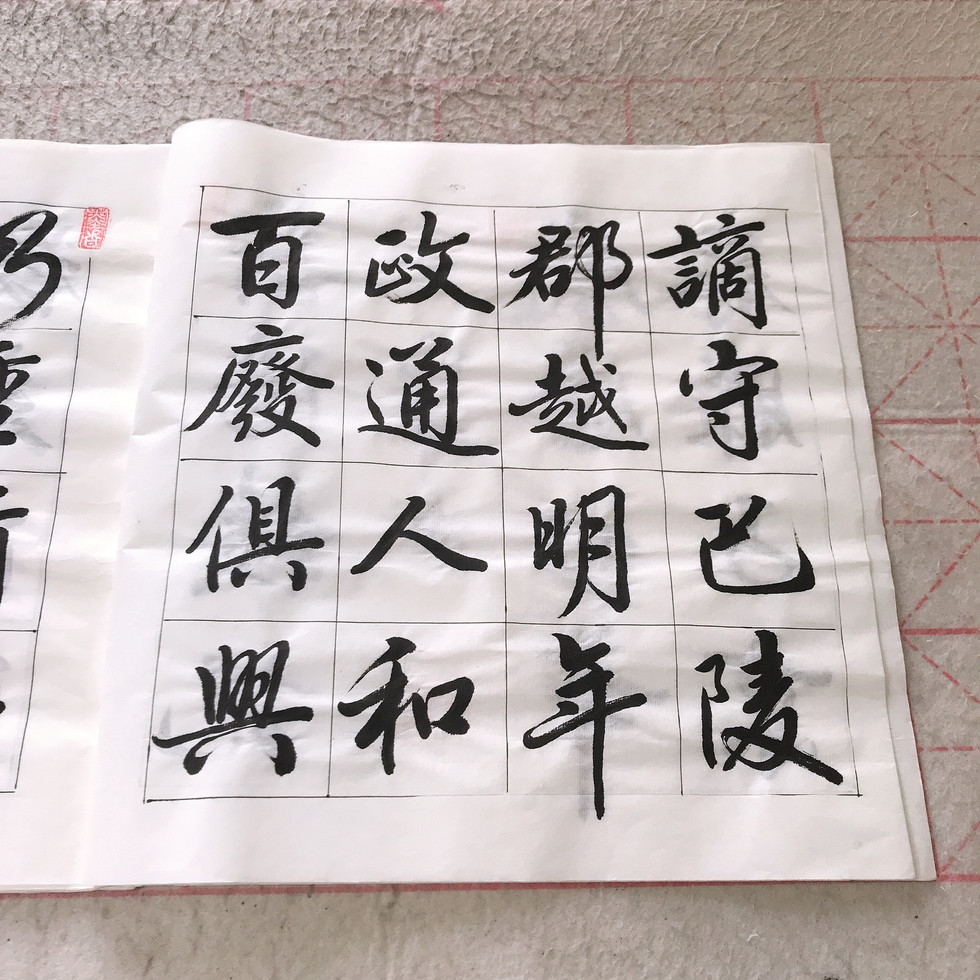 謫守巴陵
郡越明年
政通人和
百廢俱興